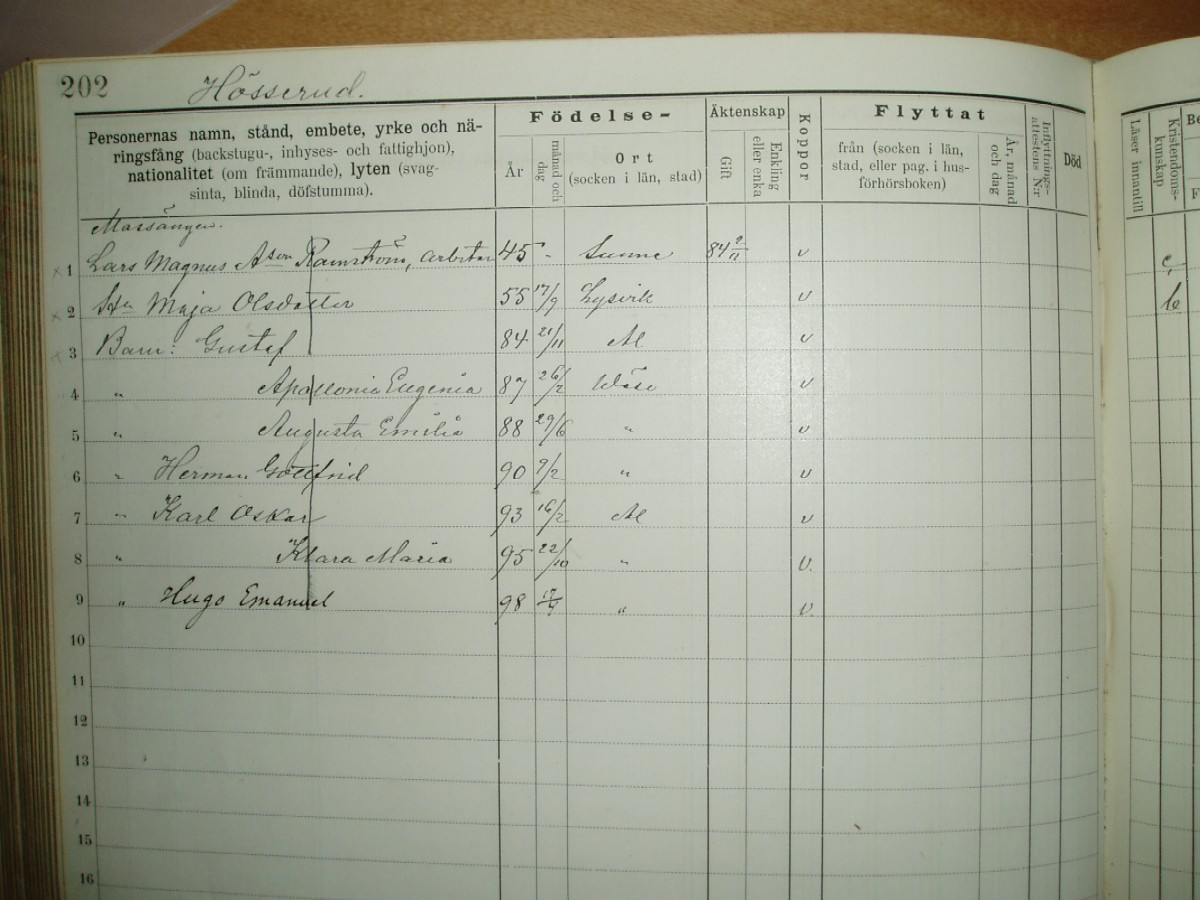 202 Hösserud.
Personernas namn, stånd, embete, yrke och nä-
ringsfång (backstugu-, inhyses- och fattighjon),
nationalitet (om främmande), lyten (svag-
sinta, blinda, döfstumma).
Födelse-
År
månad och dag
Ort
(socken i län, stad)
Äktenskap
Gift
Enkling eller enka
Koppor
Flyttat
från (socken i län,
stad, eller pag. i hus-
förhörsboken)
År, månad och dag
Inflyttnings-attestens N:r
Död
Läser innantill
Kristendoms-kunskap
Be
F
1 Lars Magnus Ason Ramström, arbetar 45 - Sunne 84 9/11 v
2 Maja Olsdotter 55 17/9 Lysvik v
3 Barn: Gustaf 84 21/11 Al v
4 " Apollonia Eugenia 87 26/2 Wäse v
5 " Augusta Emilia 88 29/6 " v
6 " Herman Gottfrid 90 9/2 " v
7 " Karl Oskar 93 16/2 Al v
8 " Klara Maria 95 22/10 " v.
9 " Hugo Emanuel 98 " v.
10
11
12
13
14
15
16